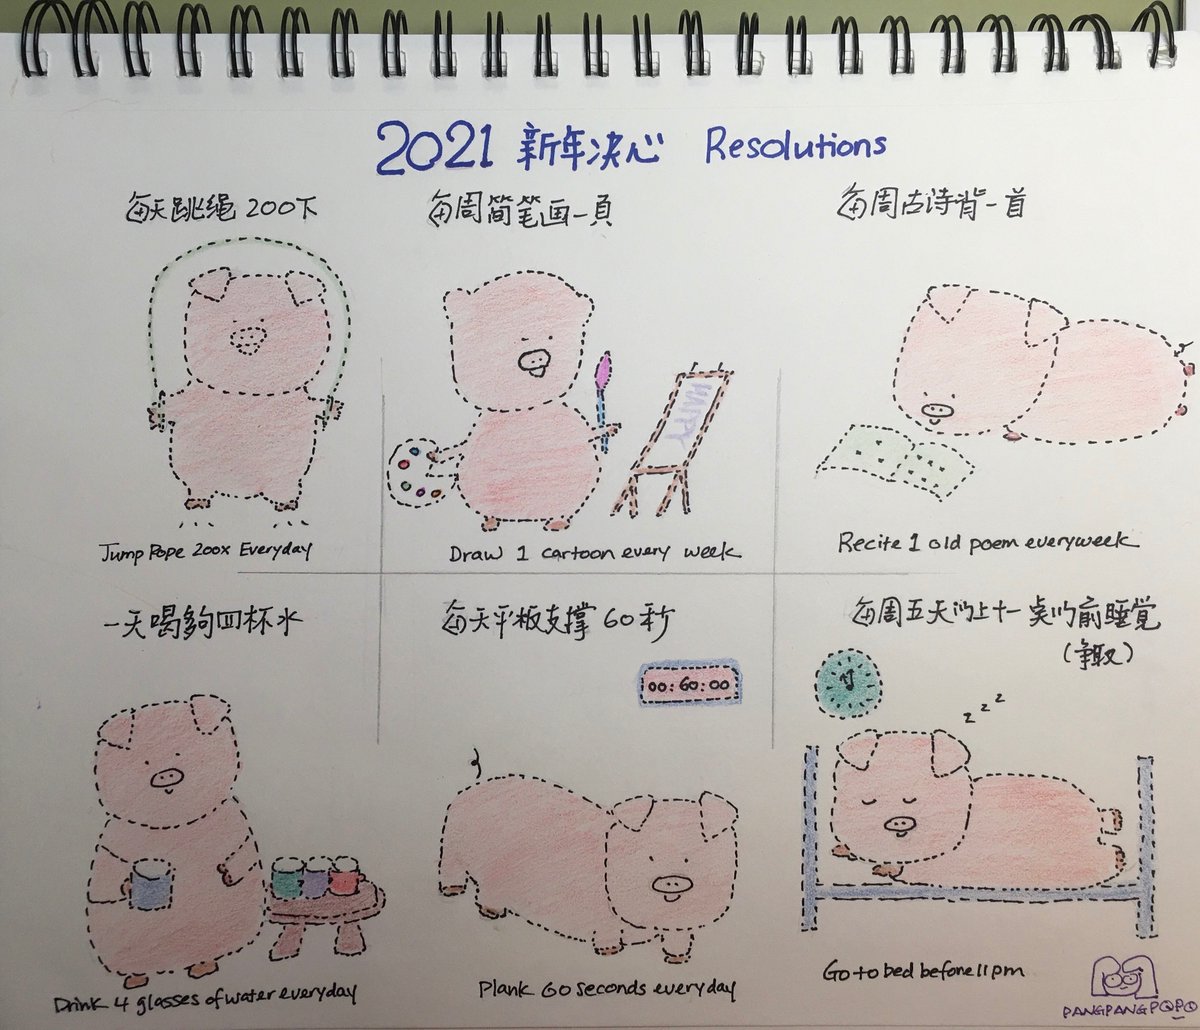 2021 新年决心 Resolutions
每天跳绳 200下
每周简笔画一頁
每周古诗背一首
HAPPY
Jump Rope 200x Everyday
Draw 1 cartoon every week
Recite 1 old poem everyweek
一天喝夠四杯水
每天平板支撑 60秒
每周五天晚上十一点前睡觉
(争取)
00:60:00
z z z
Drink 4 glasses of water everyday
Plank 60 seconds everyday
Go to bed before 11 pm
PANGPANGPOPO